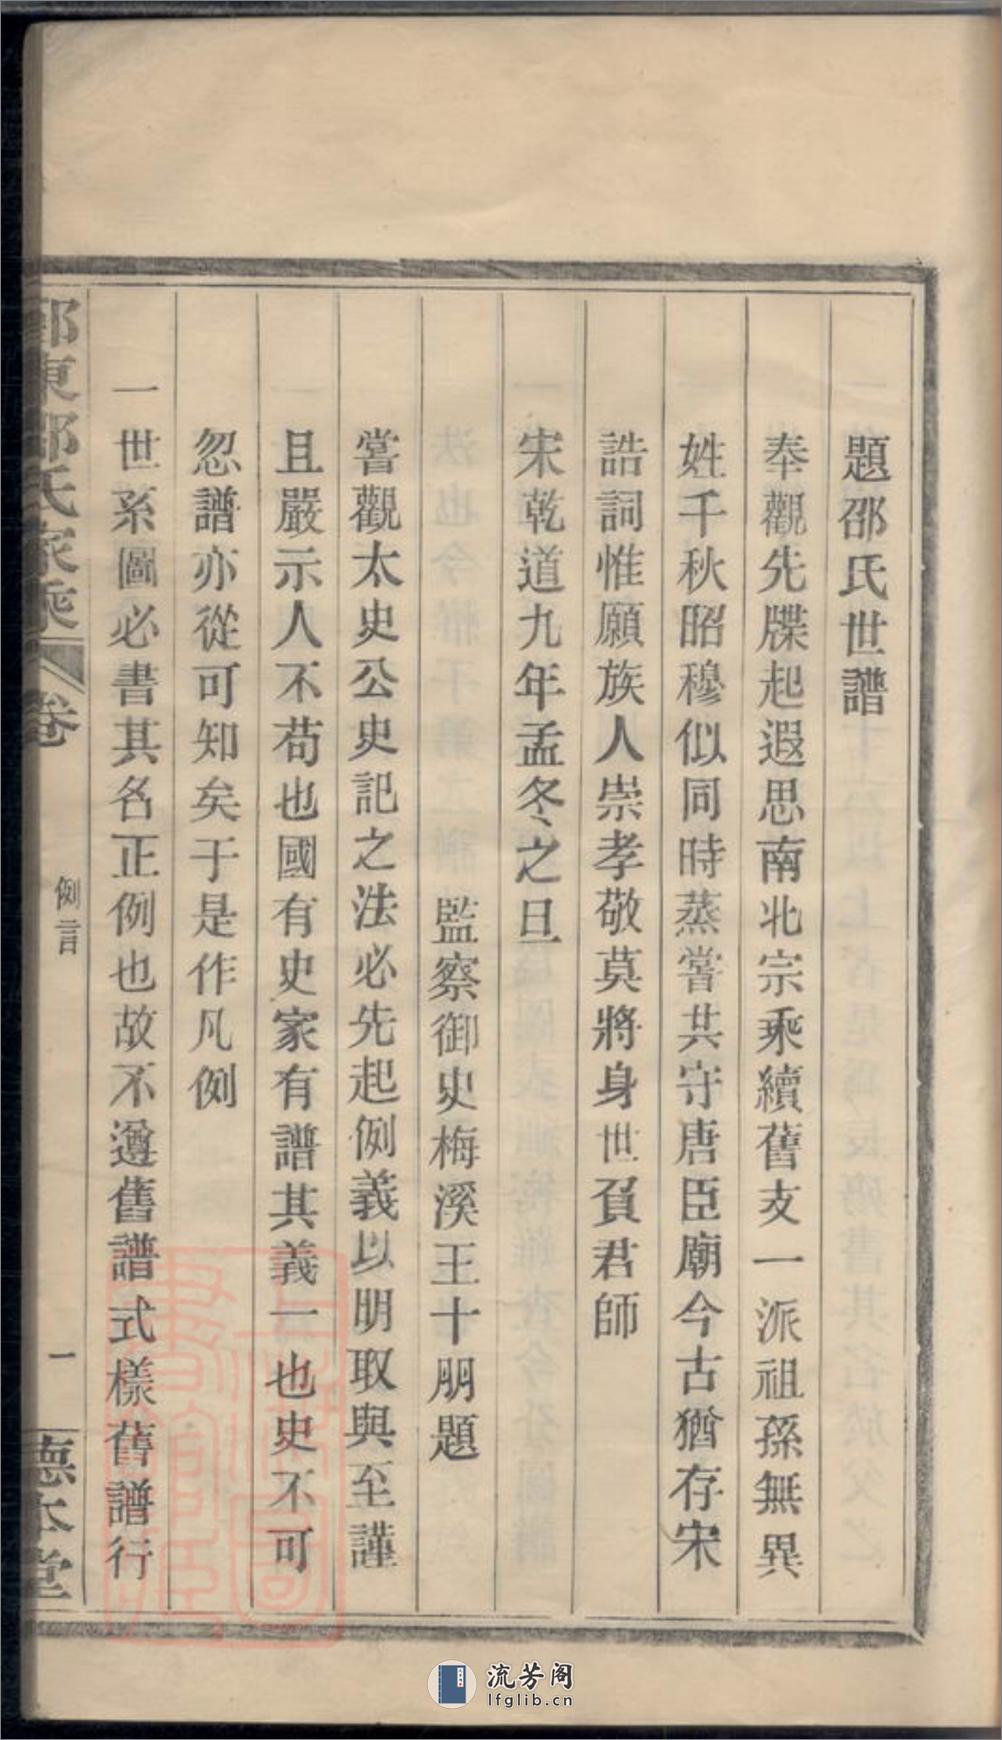 題邵氏世譜
奉觀先牒起遐思南北宗乘續舊支一派祖孫無異
姓千秋昭穆似同時蒸嘗共守唐臣廟今古猶存宋
誥詞惟願族人崇孝敬莫將身世負君師
宋乾道九年孟冬之旦
監察御史梅溪王十朋題
嘗觀太史公史記之法必先起例義以明取與至謹
且嚴示人不苟也國有史家有譜其義一也史不可
忽譜亦從可知矣于是作凡例
一世系圖必書其名正例也故不遵舊譜式樣舊譜行
東邵氏家乘
卷
例言
一
德本堂
流芳阁
lfglib.cn